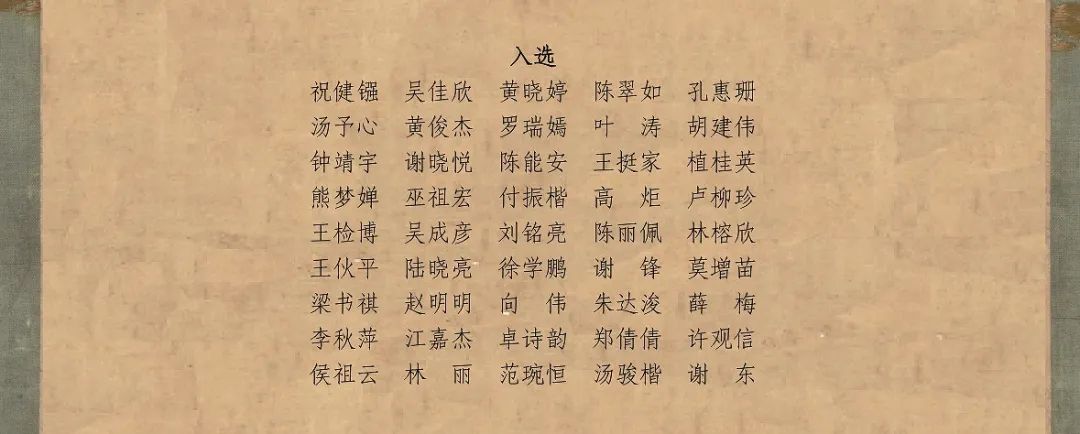 入选
祝健镪 吴佳欣 黄晓婷 陈翠如 孔惠珊
汤予心 黄俊杰 罗瑞嫣 叶　涛 胡建伟
钟靖宇 谢晓悦 陈能安 王挺家 植桂英
熊梦婵 巫祖宏 付振楷 高　炬 卢柳珍
王检博 吴成彦 刘铭亮 陈丽佩 林榕欣
王伙平 陆晓亮 徐学鹏 谢　锋 莫增苗
梁书祺 赵明明 向　伟 朱达浚 薛　梅
李秋萍 江嘉杰 卓诗韵 郑倩倩 许观信
侯祖云 林　丽 范琬恒 汤骏楷 谢　东